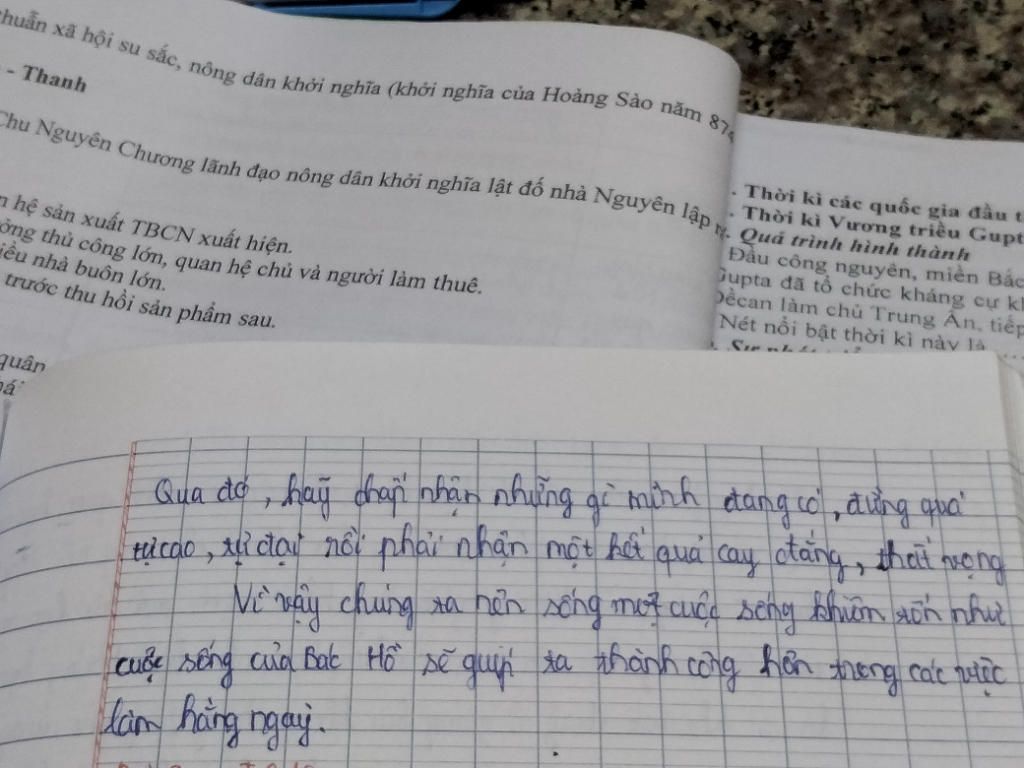 huẫn xã hội su sắc, nông dân khởi nghĩa (khởi nghĩa của Hoàng Sào năm 874
- Thanh
Chu Nguyên Chương lãnh đạo nông dân khởi nghĩa lật đổ nhà Nguyên lập
hệ sản xuất TBCN xuất hiện.
ởng thủ công lớn, quan hệ chủ và người làm thuê.
iều nhà buôn lớn.
trước thu hồi sản phẩm sau.
quân
. Thời kì các quốc gia đầu t
. Thời kì Vương triều Gupt
. Quá trình hình thành
Đầu công nguyên, miền Bắc
Gupta đã tổ chức kháng cự kh
Đêcan làm chủ Trung Ấn, tiếp
Nét nổi bật thời kì này là
Qua đó, hãy chấp nhận những gì mình đang có, đừng quá
tự cao, tự đại rồi phải nhận một kết quả cay đắng, thất vọng
Vì vậy chúng ta nên sống một cuộc sống khiêm tốn như
cuộc sống của Bác Hồ sẽ giúp ta thành công hơn trong các việc
làm hằng ngày.